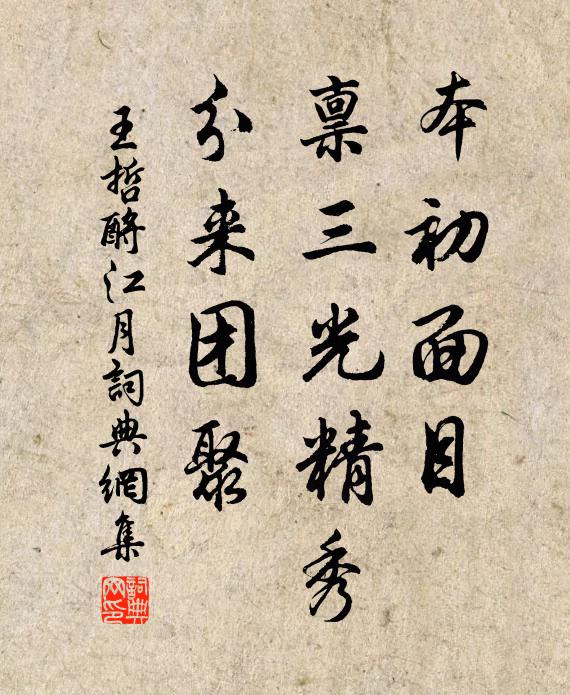 本初面目
禀三光精秀
分来团聚
王哲酹江月詞典網集
詞典网印